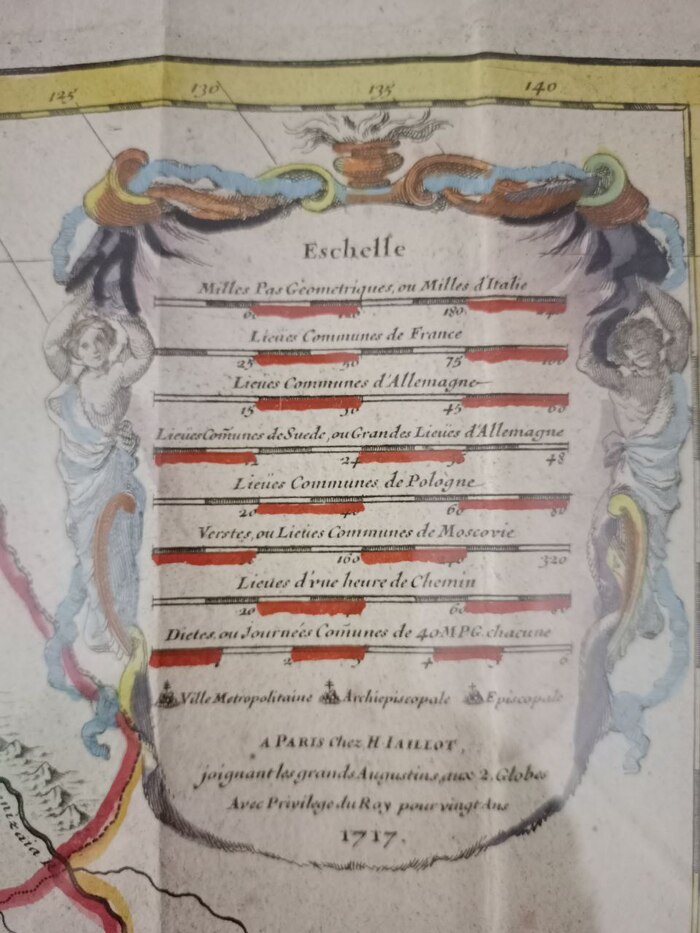 125 130 135 140
Eschelle
Milles Pas Geometriques, ou Milles d'Italie
60 120 180 240
Lieües Communes de France
25 50 75 100
Lieues Communes d'Allemagne
15 30 45 60
Lieües Com̃unes de Suede, ou Grandes Lieües d'Allemagne
12 24 36 48
Lieües Communes de Pologne
20 40 60 80
Verstes, ou Lieües Communes de Moscovie
160 320
Lieues d'vne heure de Chemin
20 60
Dietes, ou Journées Com̃unes de 40 MPG. chacune
2 4 6
Ville Metropolitaine Archiepiscopale Episcopale
A PARIS Chez H. IAILLOT,
joignant les grands Augustins, aux 2. Globes
Avec Privilege du Roy pour vingt Ans
1717.